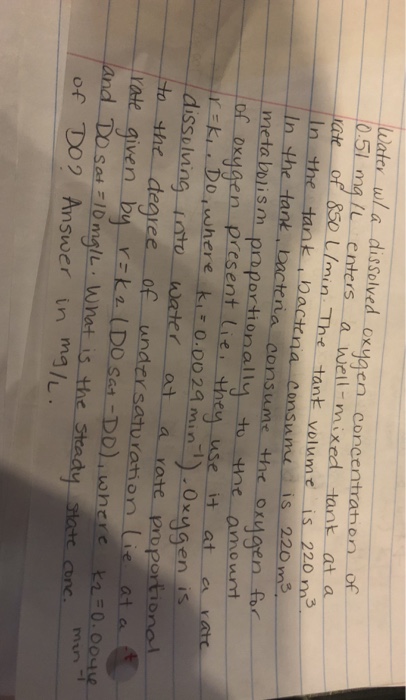 Water w/a dissolved oxygen concentration of
0.51 mg/L enters a well-mixed tank at a
rate of 850 L/min. The tank volume is 220 m³.
In the tank, bacteria consume is 220 m³.
In the tank, bacteria consume the oxygen for
metabolism proportionally to the amount
of oxygen present (i.e. they use it at a rate
r=k₁·DO, where k₁=0.0029 min⁻¹). Oxygen is
dissolving into water at a rate proportional
to the degree of undersaturation (ie at a
rate given by r=k₂(DOsat-DO), where k₂=0.0046 min⁻¹
and DOsat=10mg/L. What is the steady state conc.
of DO? Answer in mg/L.